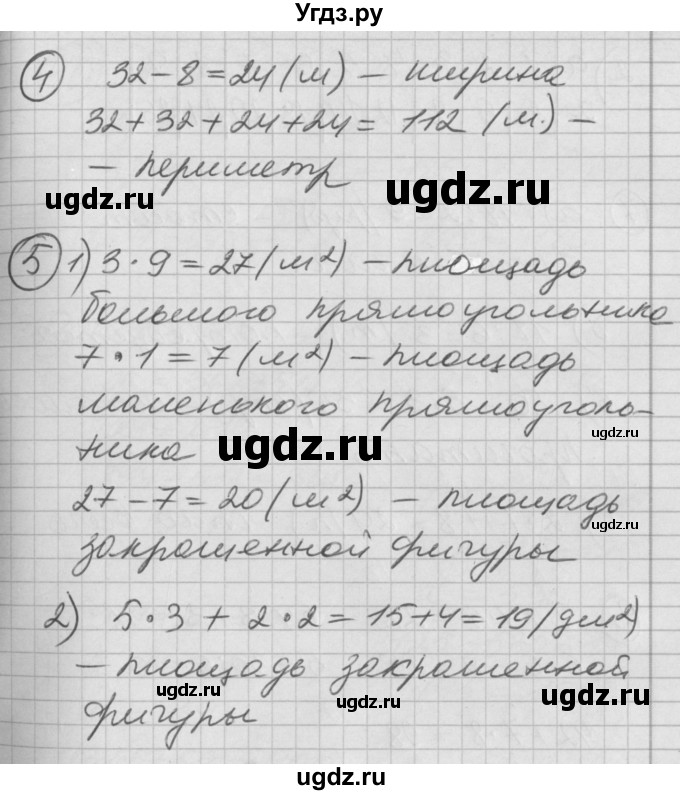 Угдз.ру
④ 32 − 8 = 24 (м) − ширина
32 + 32 + 24 + 24 = 112 (м.) −
− периметр
ugdz.ru
ugdz.ru
⑤ 1) 3 · 9 = 27 (м²) − площадь
большого прямоугольника
7 · 1 = 7 (м²) − площадь
маленького прямоуголь-
ugdz.ru
ника
ugdz.ru
27 − 7 = 20 (м²) − площадь
ugdz.ru
закрашенной фигуры
2) 5 · 3 + 2 · 2 = 15 + 4 = 19 (дм²)
− площадь закрашенной
ugdz.ru
ugdz.ru
фигуры
ugdz.ru
ugdz.ru